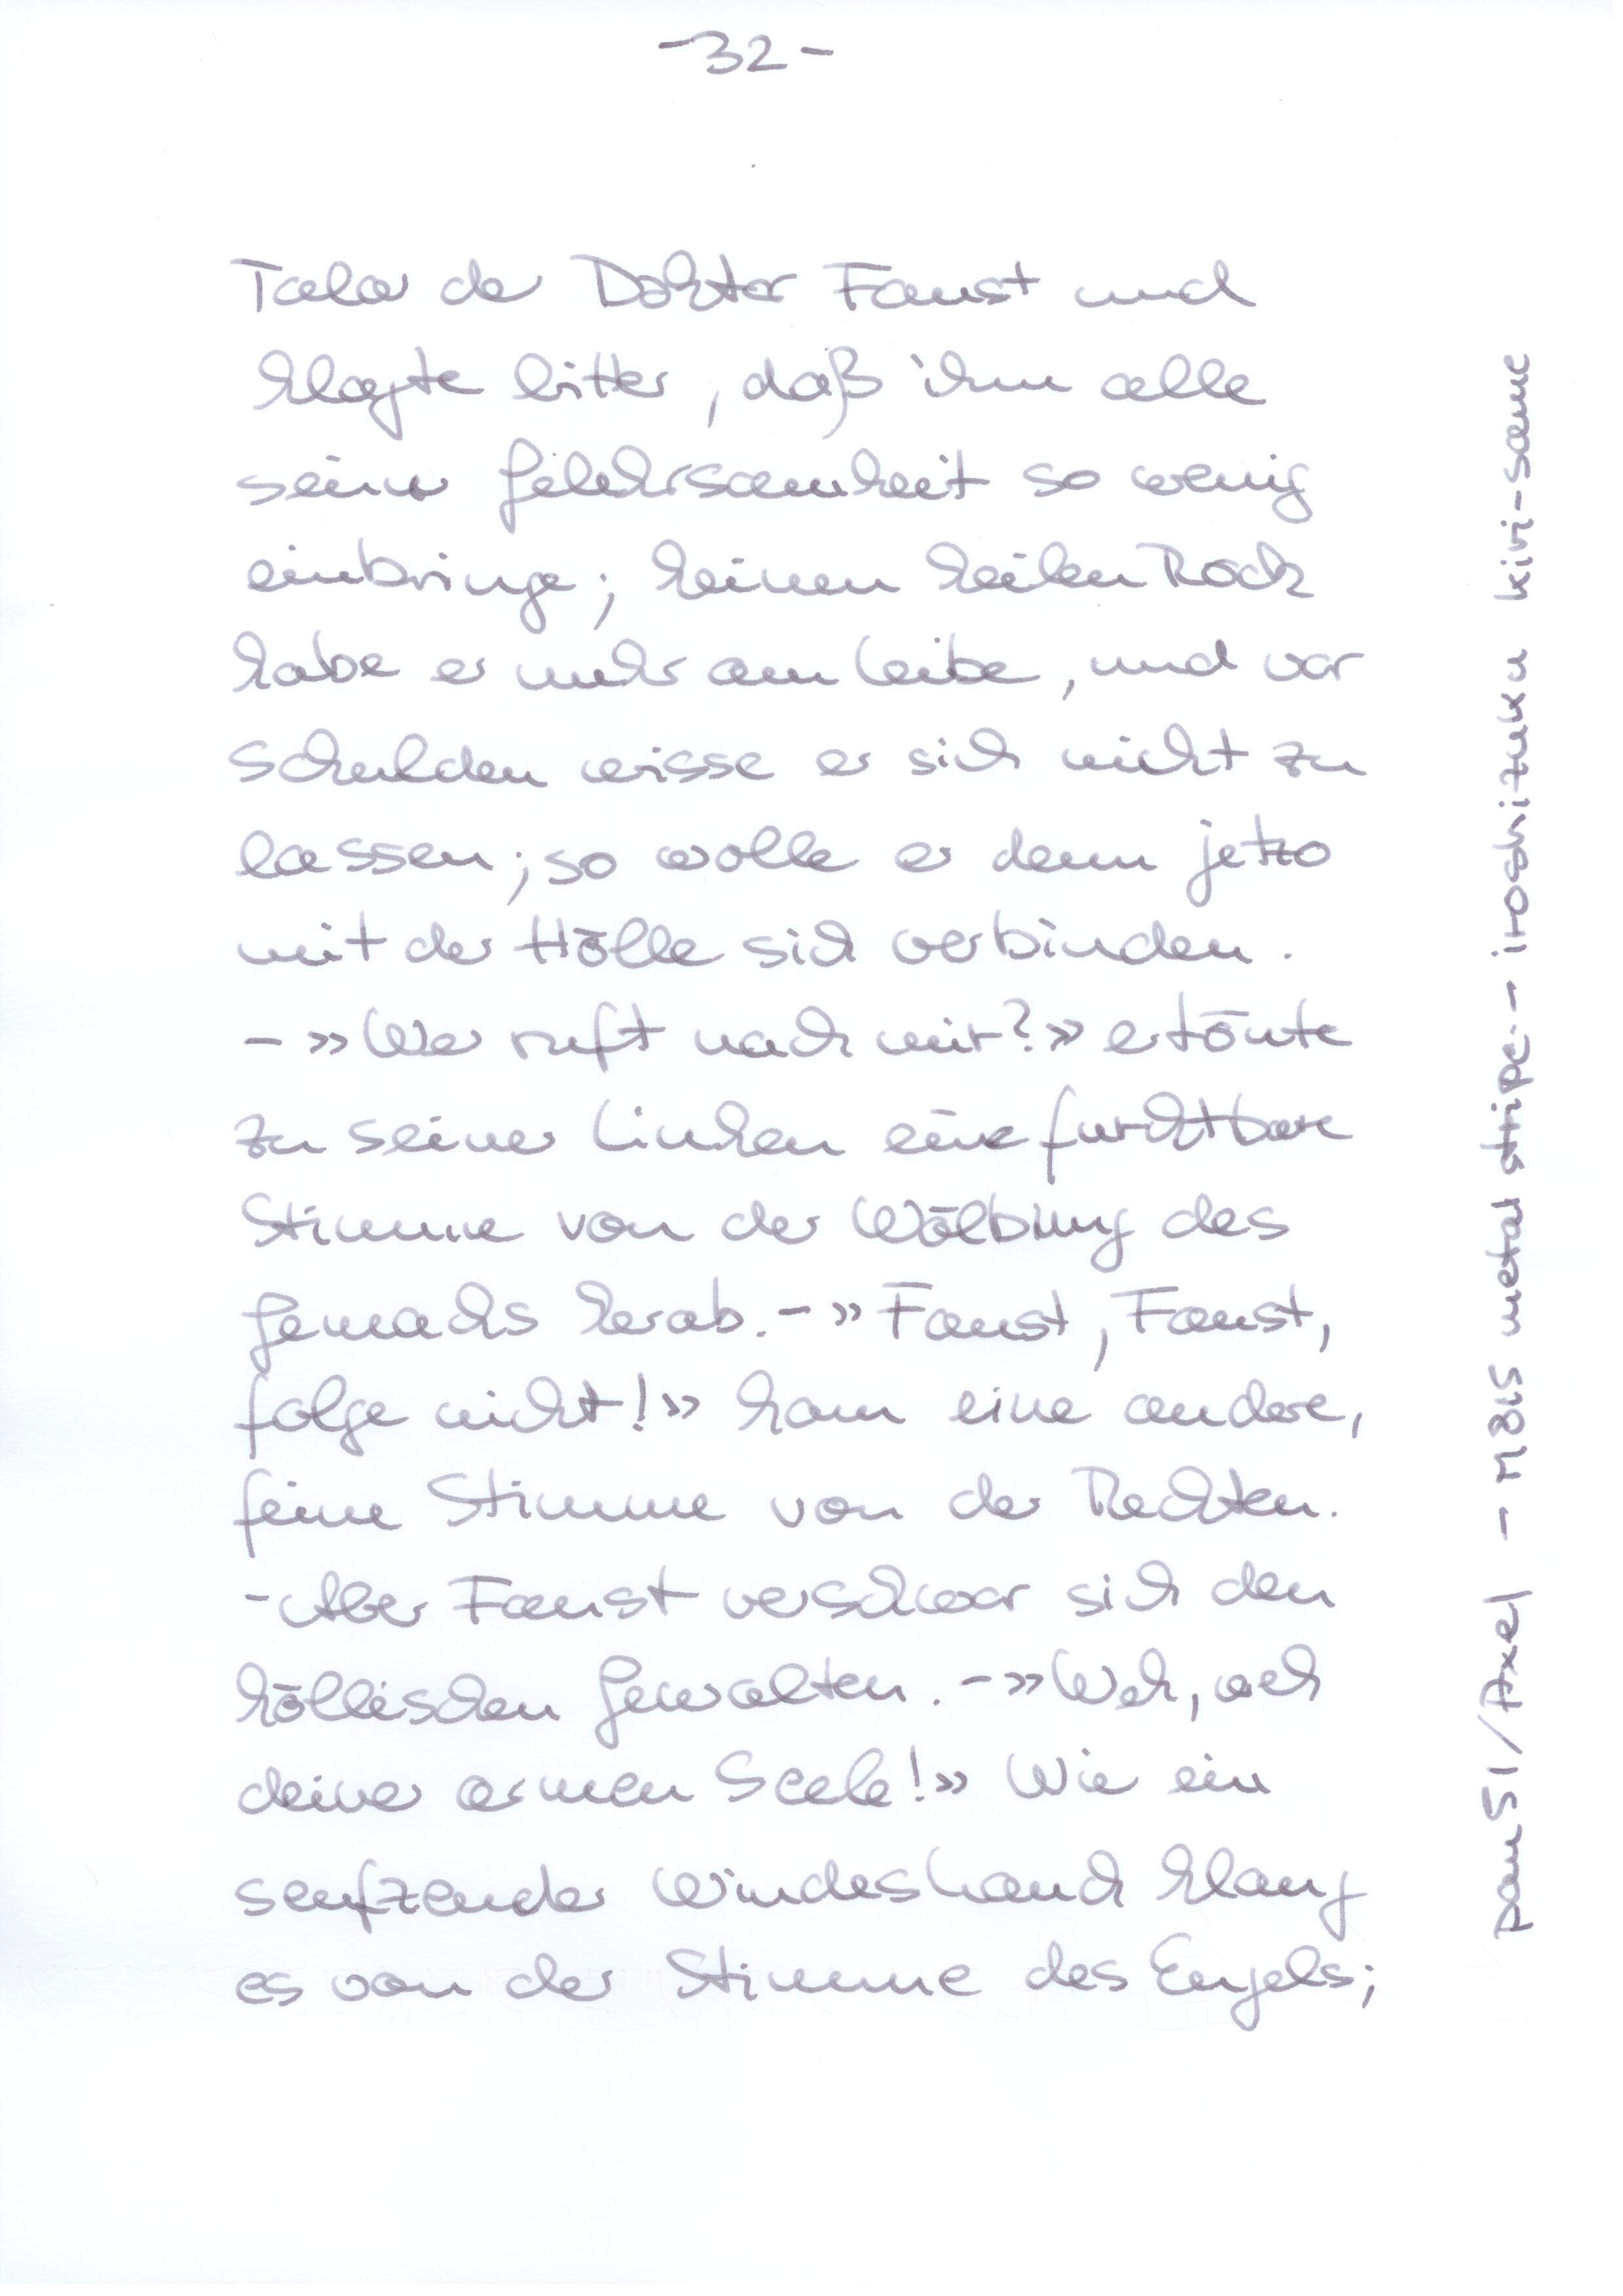 -32-
Talar der Doktor Faust und
klagte bitter, daß ihm alle
seine Gelehrsamkeit so wenig
einbringe; keinen heilen Rock
habe er mehr am Leibe, und vor
Schulden wisse er sich nicht zu
lassen; so wolle er denn jetzo
mit der Hölle sich verbinden.
– »Wer ruft nach mir?» ertönte
zu seiner Linken eine furchtbare
Stimme von der Wölbung des
Gemachs herab. – »Faust, Faust,
folge nicht!» kam eine andere,
feine Stimme von der Rechten.
- Aber Faust verschwor sich den
höllischen Gewalten. – »Weh, weh
deiner armen Seele!» Wie ein
seufzender Windeshauch klang
es von der Stimme des Engels;
pam51/Axel – M815 metal stripe – iroshizuku kiri-same